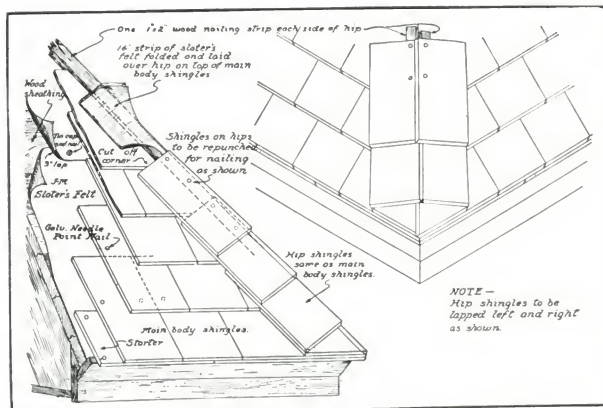 One 1"x2" wood nailing strip each side of hip
16" strip of slater's
felt folded and laid
over hip on top of main
body shingles
Wood
sheathing
Tin cap
and nail
3" lap
Cut off
corner
Shingles on hips
to be repunched
for nailing
as shown
J-M
Slater's Felt
Galv. Needle
Point Nail
Hip shingles
same as main
body shingles.
Main body shingles.
Starter
NOTE —
Hip shingles to be
lapped left and right
as shown.